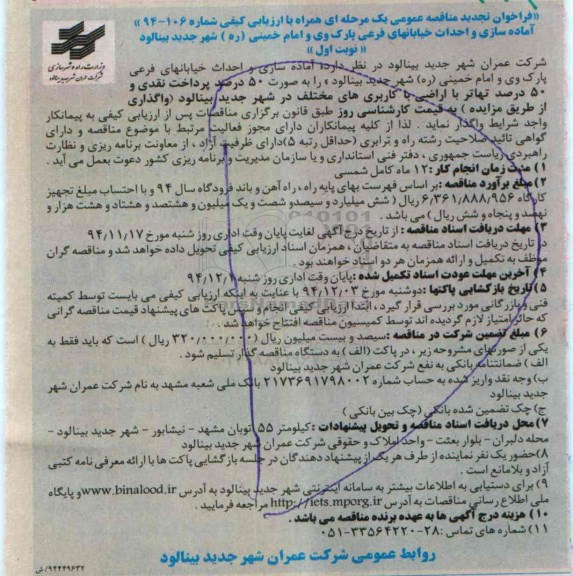 «فراخوان تجدید مناقصه عمومی یک مرحله ای همراه با ارزیابی کیفی شماره ۱۰۶-۹۴»
آماده سازی و احداث خیابانهای فرعی پارک وی و امام خمینی (ره) شهر جدید بینالود
« نوبت اول »
وزارت راه و شهرسازی
شرکت عمران شهر جدید بینالود
شرکت عمران شهر جدید بینالود در نظر دارد: آماده سازی و احداث خیابانهای فرعی
پارک وی و امام خمینی (ره) شهر جدید بینالود » را به صورت ۵۰ درصد پرداخت نقدی و
۵۰ درصد تهاتر با اراضی با کاربری های مختلف در شهر جدید بینالود (واگذاری
از طریق مزایده ) به قیمت کارشناسی روز طبق قانون برگزاری مناقصات پس از ارزیابی کیفی به پیمانکار
واجد شرایط واگذار نماید . لذا از کلیه پیمانکاران دارای مجوز فعالیت مرتبط با موضوع مناقصه و دارای
گواهی تائید صلاحیت رشته راه و ترابری (حداقل رتبه ۵)دارای ظرفیت آزاد ، از معاونت برنامه ریزی و نظارت
راهبردی ریاست جمهوری ، دفتر فنی استانداری و یا سازمان مدیریت و برنامه ریزی کشور دعوت بعمل می آید .
۱) مدت زمان انجام کار : ۱۲ ماه کامل شمسی
۲)مبلغ برآورد مناقصه :بر اساس فهرست بهای پایه راه ، راه آهن و باند فرودگاه سال ۹۴ و با احتساب مبلغ تجهیز
کارگاه ۶/۳۶۱/۸۸۸/۹۵۶ ریال ( شش میلیارد و سیصدو شصت و یک میلیون و هشتصد و هشتاد و هشت هزار و
نهصد و پنجاه و شش ریال ) می باشد .
۳) مهلت دریافت اسناد مناقصه : از تاریخ درج آگهی لغایت پایان وقت اداری روز شنبه مورخ ۹۴/۱۱/۱۷
در تاریخ دریافت اسناد مناقصه به متقاضیان ، همزمان اسناد ارزیابی کیفی تحویل داده خواهد شد و مناقصه گران
موظف به تکمیل و ارائه همزمان هر دو اسناد خواهند بود .
۴) آخرین مهلت عودت اسناد تکمیل شده :پایان وقت اداری روز شنبه
۵)تاریخ بازگشایی پاکتها :دوشنبه مورخ ۹۴/۱۲/۰۳ با عنایت به اینکه ارزیابی کیفی می بایست توسط کمیته
فنی و بازرگانی مورد بررسی قرار گیرد ، ابتدا ارزیابی کیفی انجام و سپس پاکت های پیشنهاد قیمت مناقصه گرانی
که حائز امتیاز لازم گردیده اند توسط کمیسیون مناقصه افتتاح خواهد شد .
۶) مبلغ تضمین شرکت در مناقصه :سیصد و بیست میلیون ریال (۳۲۰/۰۰۰/۰۰۰ ریال ) است که باید فقط به
یکی از صورتهای مشروحه زیر ، در پاکت (الف ) به دستگاه مناقصه گذار تسلیم شود .
الف ) ضمانتنامه بانکی به نفع شرکت عمران شهر جدید بینالود
ب) وجه نقد واریز شده به حساب شماره ۲۱۷۳۶۹۱۷۹۸۰۰۲ بانک ملی شعبه مشهد به نام شرکت عمران شهر
جدید بینالود
ج) چک تضمین شده بانکی (چک بین بانکی )
۷) محل دریافت اسناد مناقصه و تحویل پیشنهادات :کیلومتر ۵۵ اتوبان مشهد - نیشابور - شهر جدید بینالود -
محله دلبران - بلوار بعثت - واحد املاک و حقوقی شرکت عمران شهر جدید بینالود
۸)حضور یک نفر نماینده از طرف هر یک از پیشنهاد دهندگان در جلسه بازگشایی پاکت ها با ارائه معرفی نامه کتبی
آزاد و بلامانع است .
۹) برای دستیابی به اطلاعات بیشتر به سامانه اینترنتی شهر جدید بینالود به آدرس www.binalood.ir و پایگاه
ملی اطلاع رسانی مناقصات به آدرس http://iets.mporg.ir مراجعه فرمایید .
۱۰) هزینه درج آگهی ها به عهده برنده مناقصه می باشد .
۱۱) شماره های تماس : ۲۸-۳۳۵۶۴۲۲۰-۰۵۱
روابط عمومی شرکت عمران شهر جدید بینالود
۹۴۴۴۹۶۳۲/ش